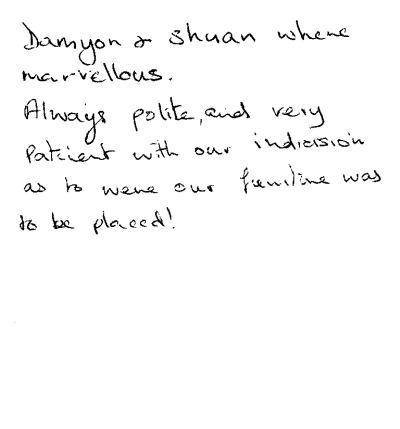 Damyon & Shuan where
marvellous.
Always polite, and very
Patcient with our indicision
as to were our furniture was
to be placed!